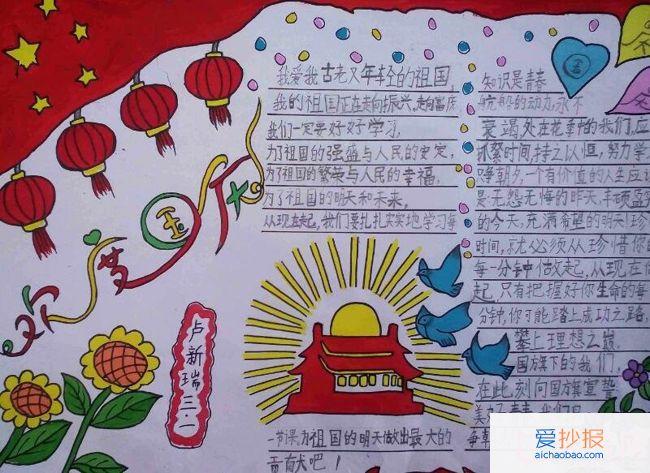 欢度国庆
我爱我古老又年轻的祖国,
我的祖国正在走向振兴,走向富庆
我们一定要好好学习,
为了祖国的强盛与人民的安定,
为了祖国的繁荣与人民的幸福,
为了祖国的明天和未来,
从现在起,我们要扎扎实实地学习每
一节课为祖国的明天做出最大的
贡献吧!
卢新瑞三.一
知识是青春
的动力,永不
衰竭处在花季的我们,应
抓紧时间,持之以恒,努力学
争朝夕,一个有价值的人生应
是无怨无悔的昨天,丰硕盈
的今天,充满希望的明天!珍
时间,就必须从珍惜你
每一分钟做起,从现在
起,只有把握好你生命的每
分钟,你才能踏上成功之路,
攀上理想之巅
国旗下的我们
在此刻向国旗宣誓
国
爱抄报
aichaobao.com